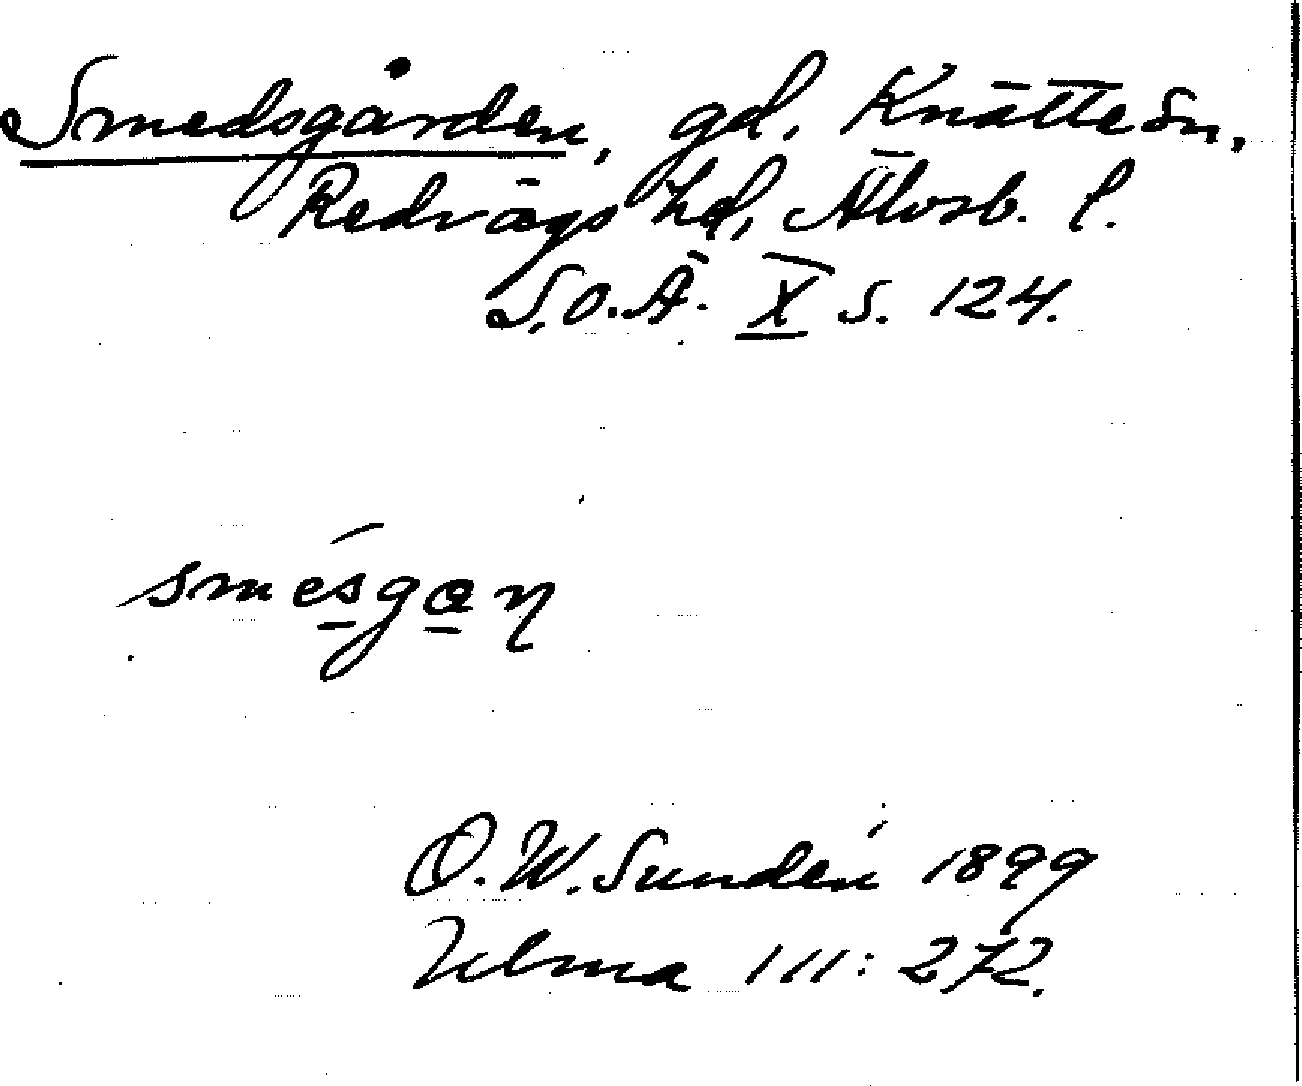 Smedsgården, gd. Knätte sn,
Redvägs hd, Älvsb. l.
S.O.Ä. X s. 124.
smésgan
O.W.Sundén 1899
Ulma 111: 272.